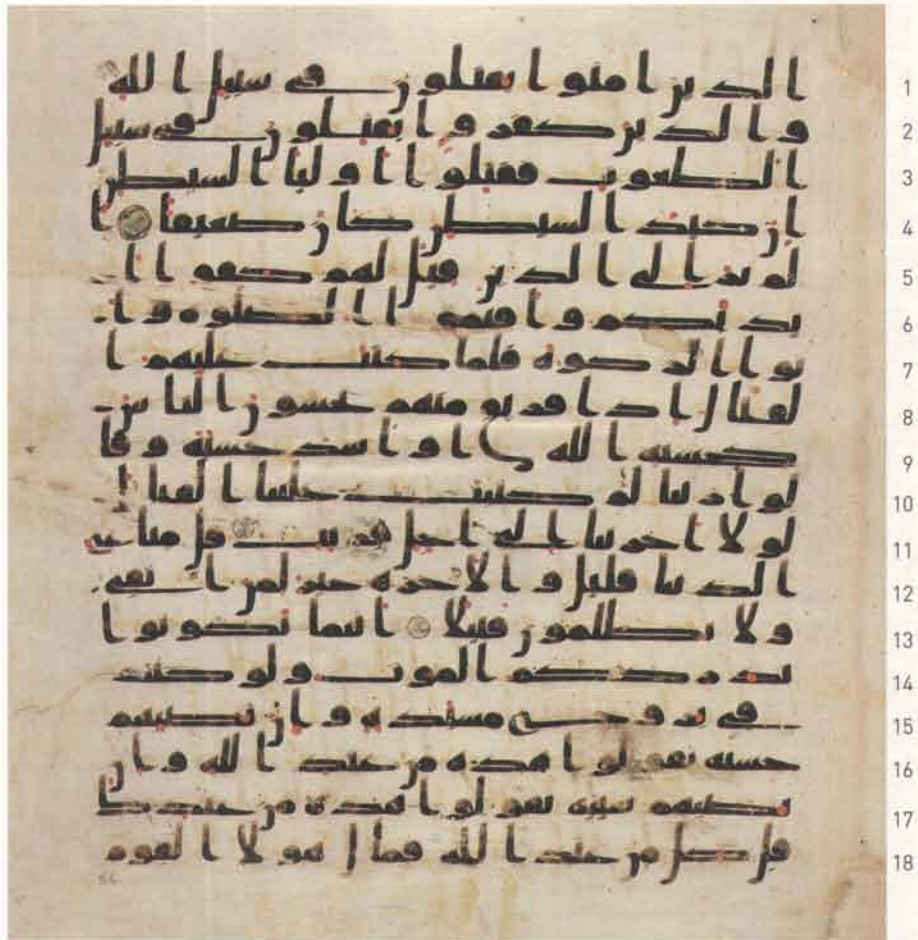 الذين امنوا يقتلون في سبيل الله 1
والذين كفروا يقتلون في سبيل 2
الطغوت فقتلوا اوليا الشيطن 3
ان كيد الشيطن كان ضعيفا ا 4
لم تر الى الذين قيل لهم كفوا ا 5
يديكم واقيموا الصلوة وا 6
توا الزكوة فلما كتب عليهم ا 7
لقتال اذا فريق منهم يخشون الناس 8
كخشية الله او اشد خشية وقا 9
لوا ربنا لم كتبت علينا القتال 10
لولا اخرتنا الى اجل قريب قل متاع 11
الدنيا قليل والاخرة خير لمن اتقى 12
ولا تظلمون فتيلا اينما تكونوا 13
يدرككم الموت ولو كنتم 14
في بروج مشيدة وان تصبهم 15
حسنة يقولوا هذه من عند الله وان 16
تصبهم سيئة يقولوا هذه من عندك 17
قل كل من عند الله فمال هولا القوم 18